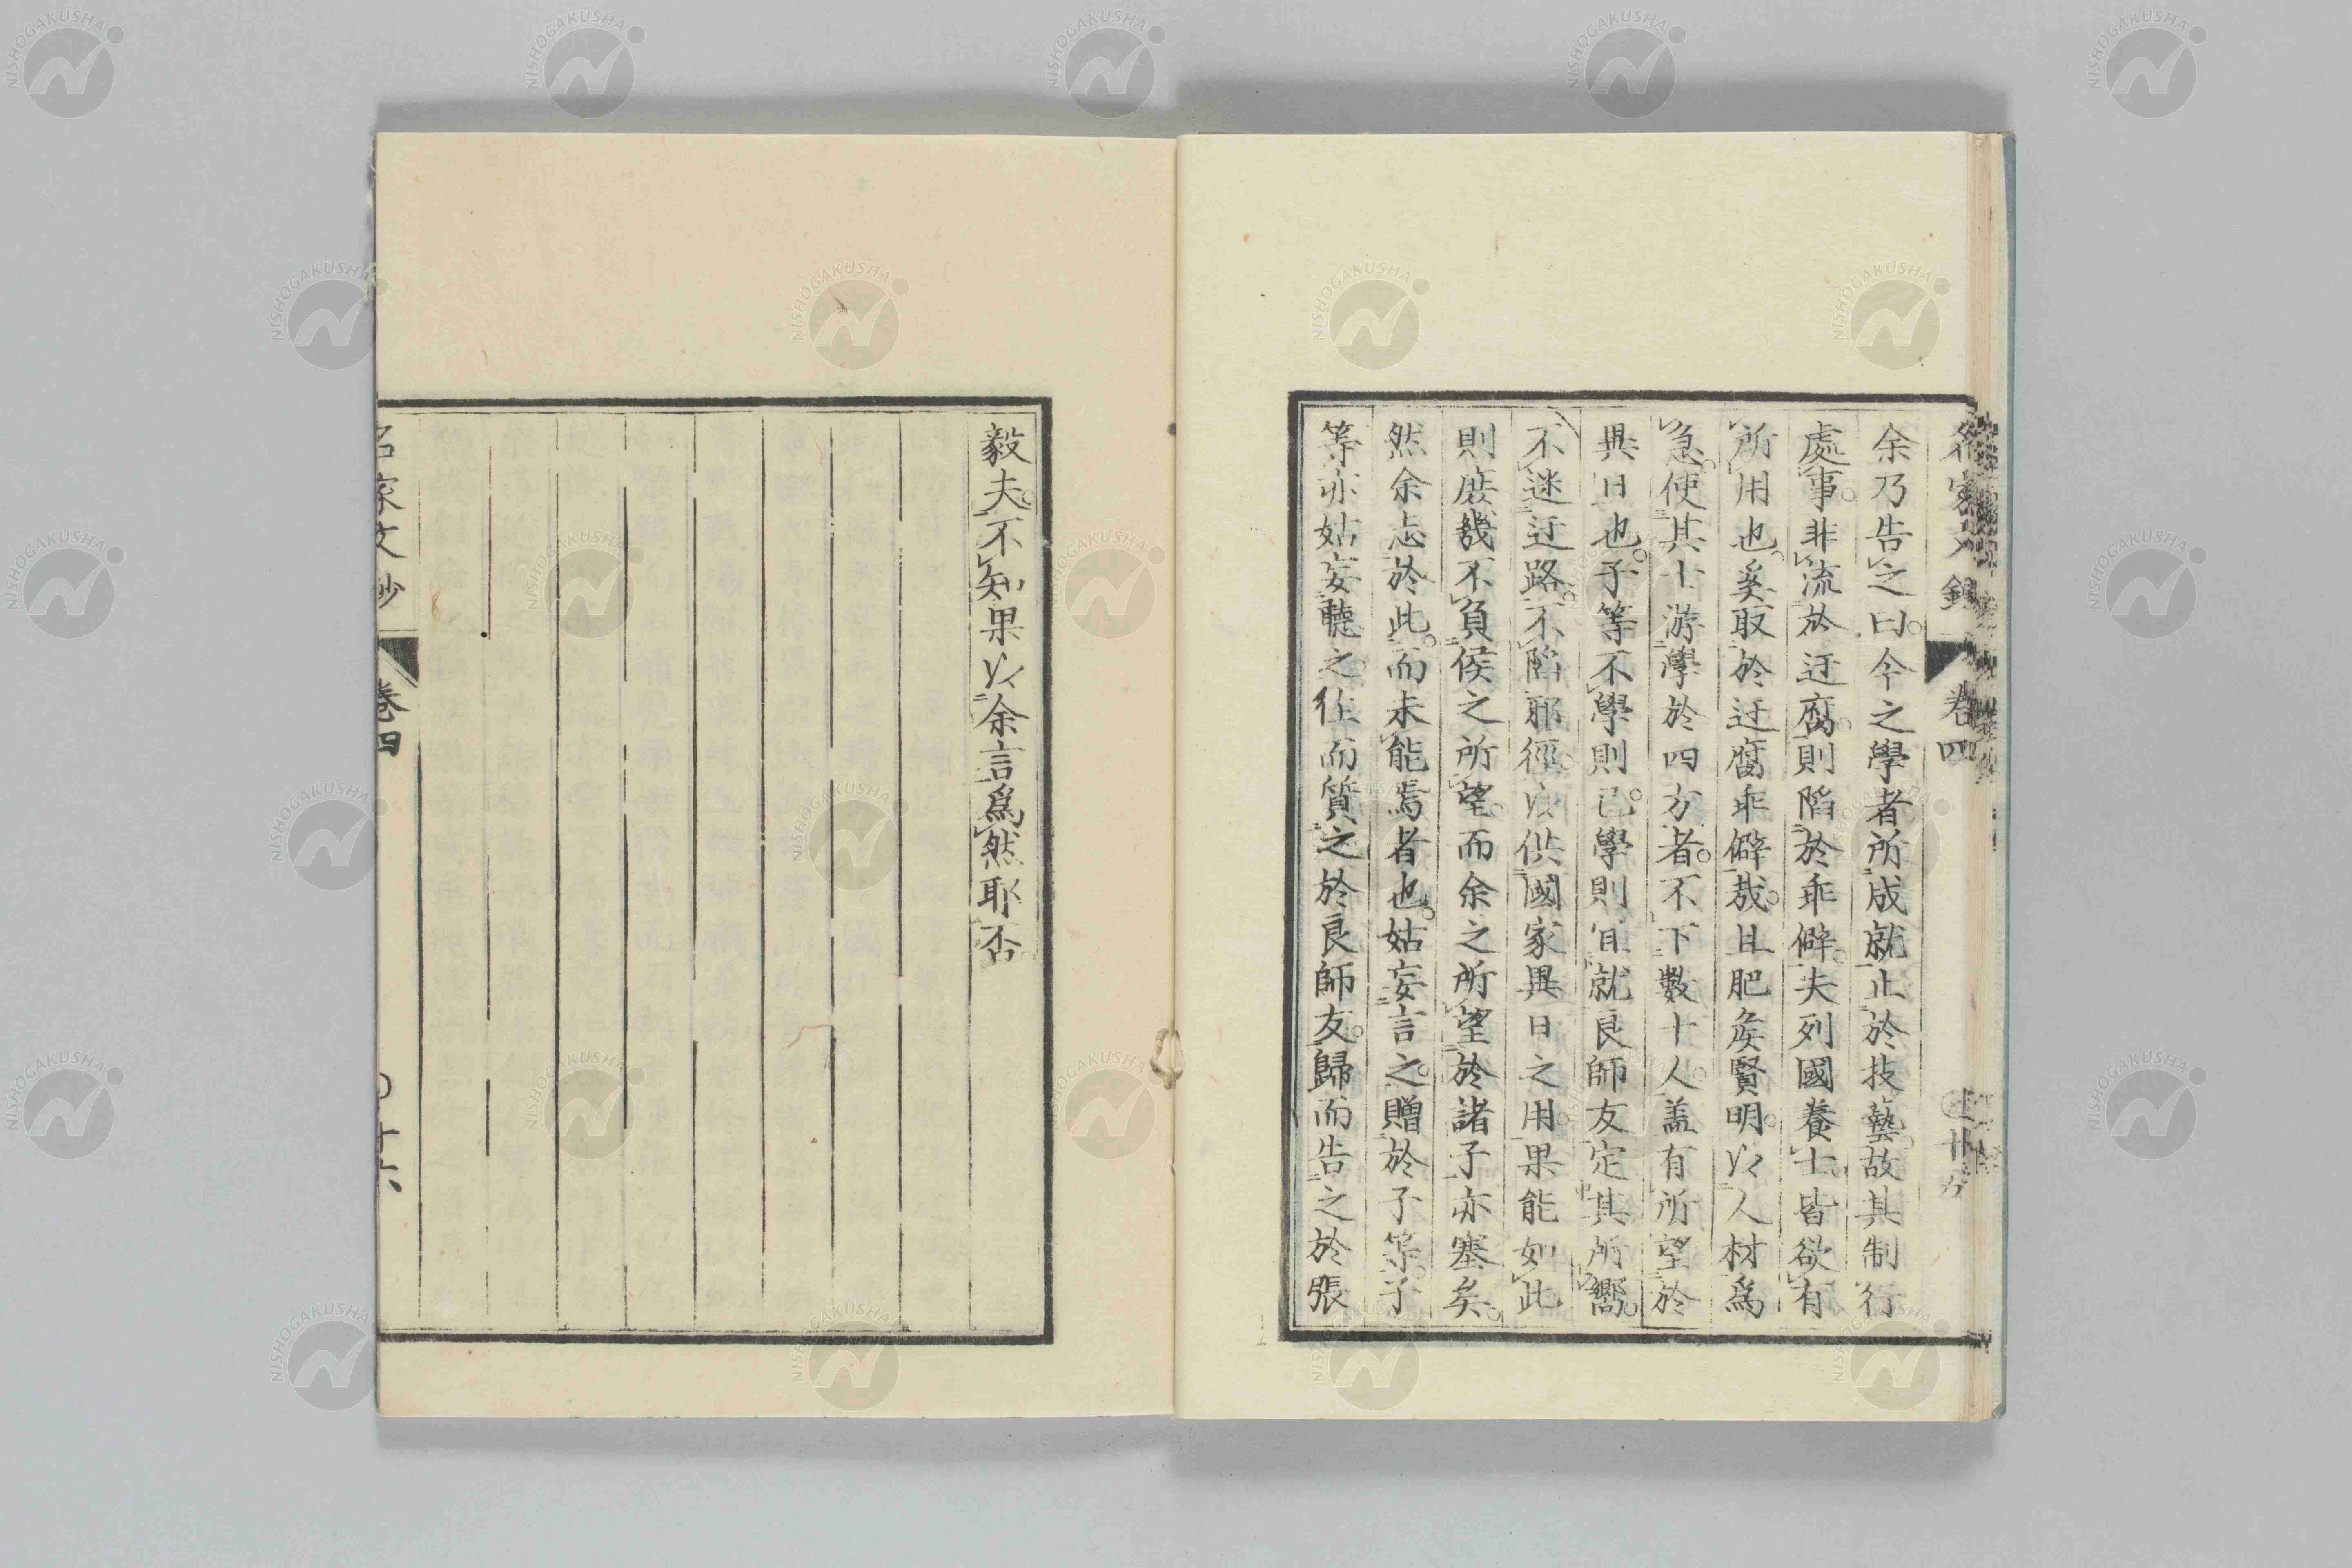 余乃告之曰今之學者所成就止於技藝故其制行
處事非流於迂腐則陷於乖僻夫列國養士皆欲有
所用也奚取於迂腐乖僻哉且肥矦賢明以人材爲
急使其士游學於四方者不下數十人盖有所望於
異日也子等不學則已學則宜就良師友定其所嚮
不迷迂路不陷邪徑以供國家異日之用果能如此
則庶幾不負侯之所望而余之所望於諸子亦塞矣
然余志於此而未能焉者也姑妄言之贈於子等子
等亦姑妄聽之往而質之於良師友歸而告之於張
毅夫不知果以余言爲然耶否
名家文鈔
卷四
十六
NISHOGAKUSHA